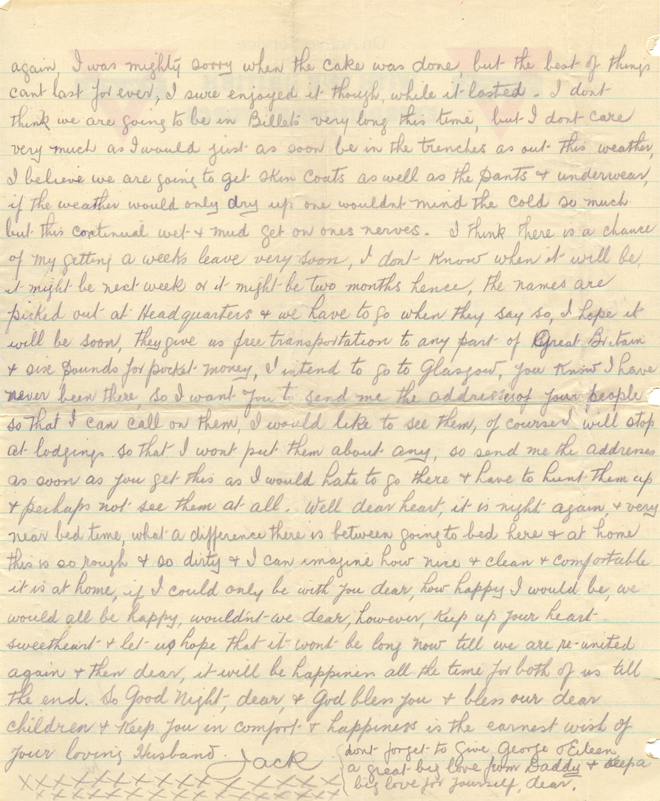 again, I was mighty sorry when the cake was done, but the best of things
cant last for ever, I sure enjoyed it though, while it lasted. I dont
think we are going to be in Billets very long this time, but I dont care
very much as I would just as soon be in the trenches as out this weather,
I believe we are going to get skin coats as well as the pants & underwear,
if the weather would only dry up one wouldnt mind the cold so much
but this continual wet & mud get on ones nerves. I think there is a chance
of my getting a weeks leave very soon, I dont know when it will be,
it might be next week or it might be two months hence, the names are
picked out at Headquarters & we have to go when they say so, I hope it
will be soon, they give us free transportation to any part of Great Britain
& six pounds for pocket money, I intend to go to Glasgow, you know I have
never been there, so I want you to send me the addresses of your people
so that I can call on them, I would like to see them, of course I will stop
at lodgings so that I wont put them about any, so send me the addresses
as soon as you get this as I would hate to go there & have to hunt them up
& perhaps not see them at all. Well dear heart, it is night again & very
near bed time, what a difference there is between going to bed here & at home
this is so rough & so dirty & I can imagine how nice & clean & comfortable
it is at home, if I could only be with you dear, how happy I would be, we
would all be happy, wouldnt we dear, however, keep up your heart
sweetheart & let us hope that it wont be long now till we are re-united
again & then dear, it will be happiness all the time for both of us till
the end. So Good Night, dear, & God bless you & bless our dear
children & keep you in comfort & happiness is the earnest wish of
your loving Husband. Jack
dont forget to give George & Eileen
a great big love from Daddy & keep a
big love for yourself, dear.
XXXXXXXXXXXXXXX
XXXXXXXXXXXXXX